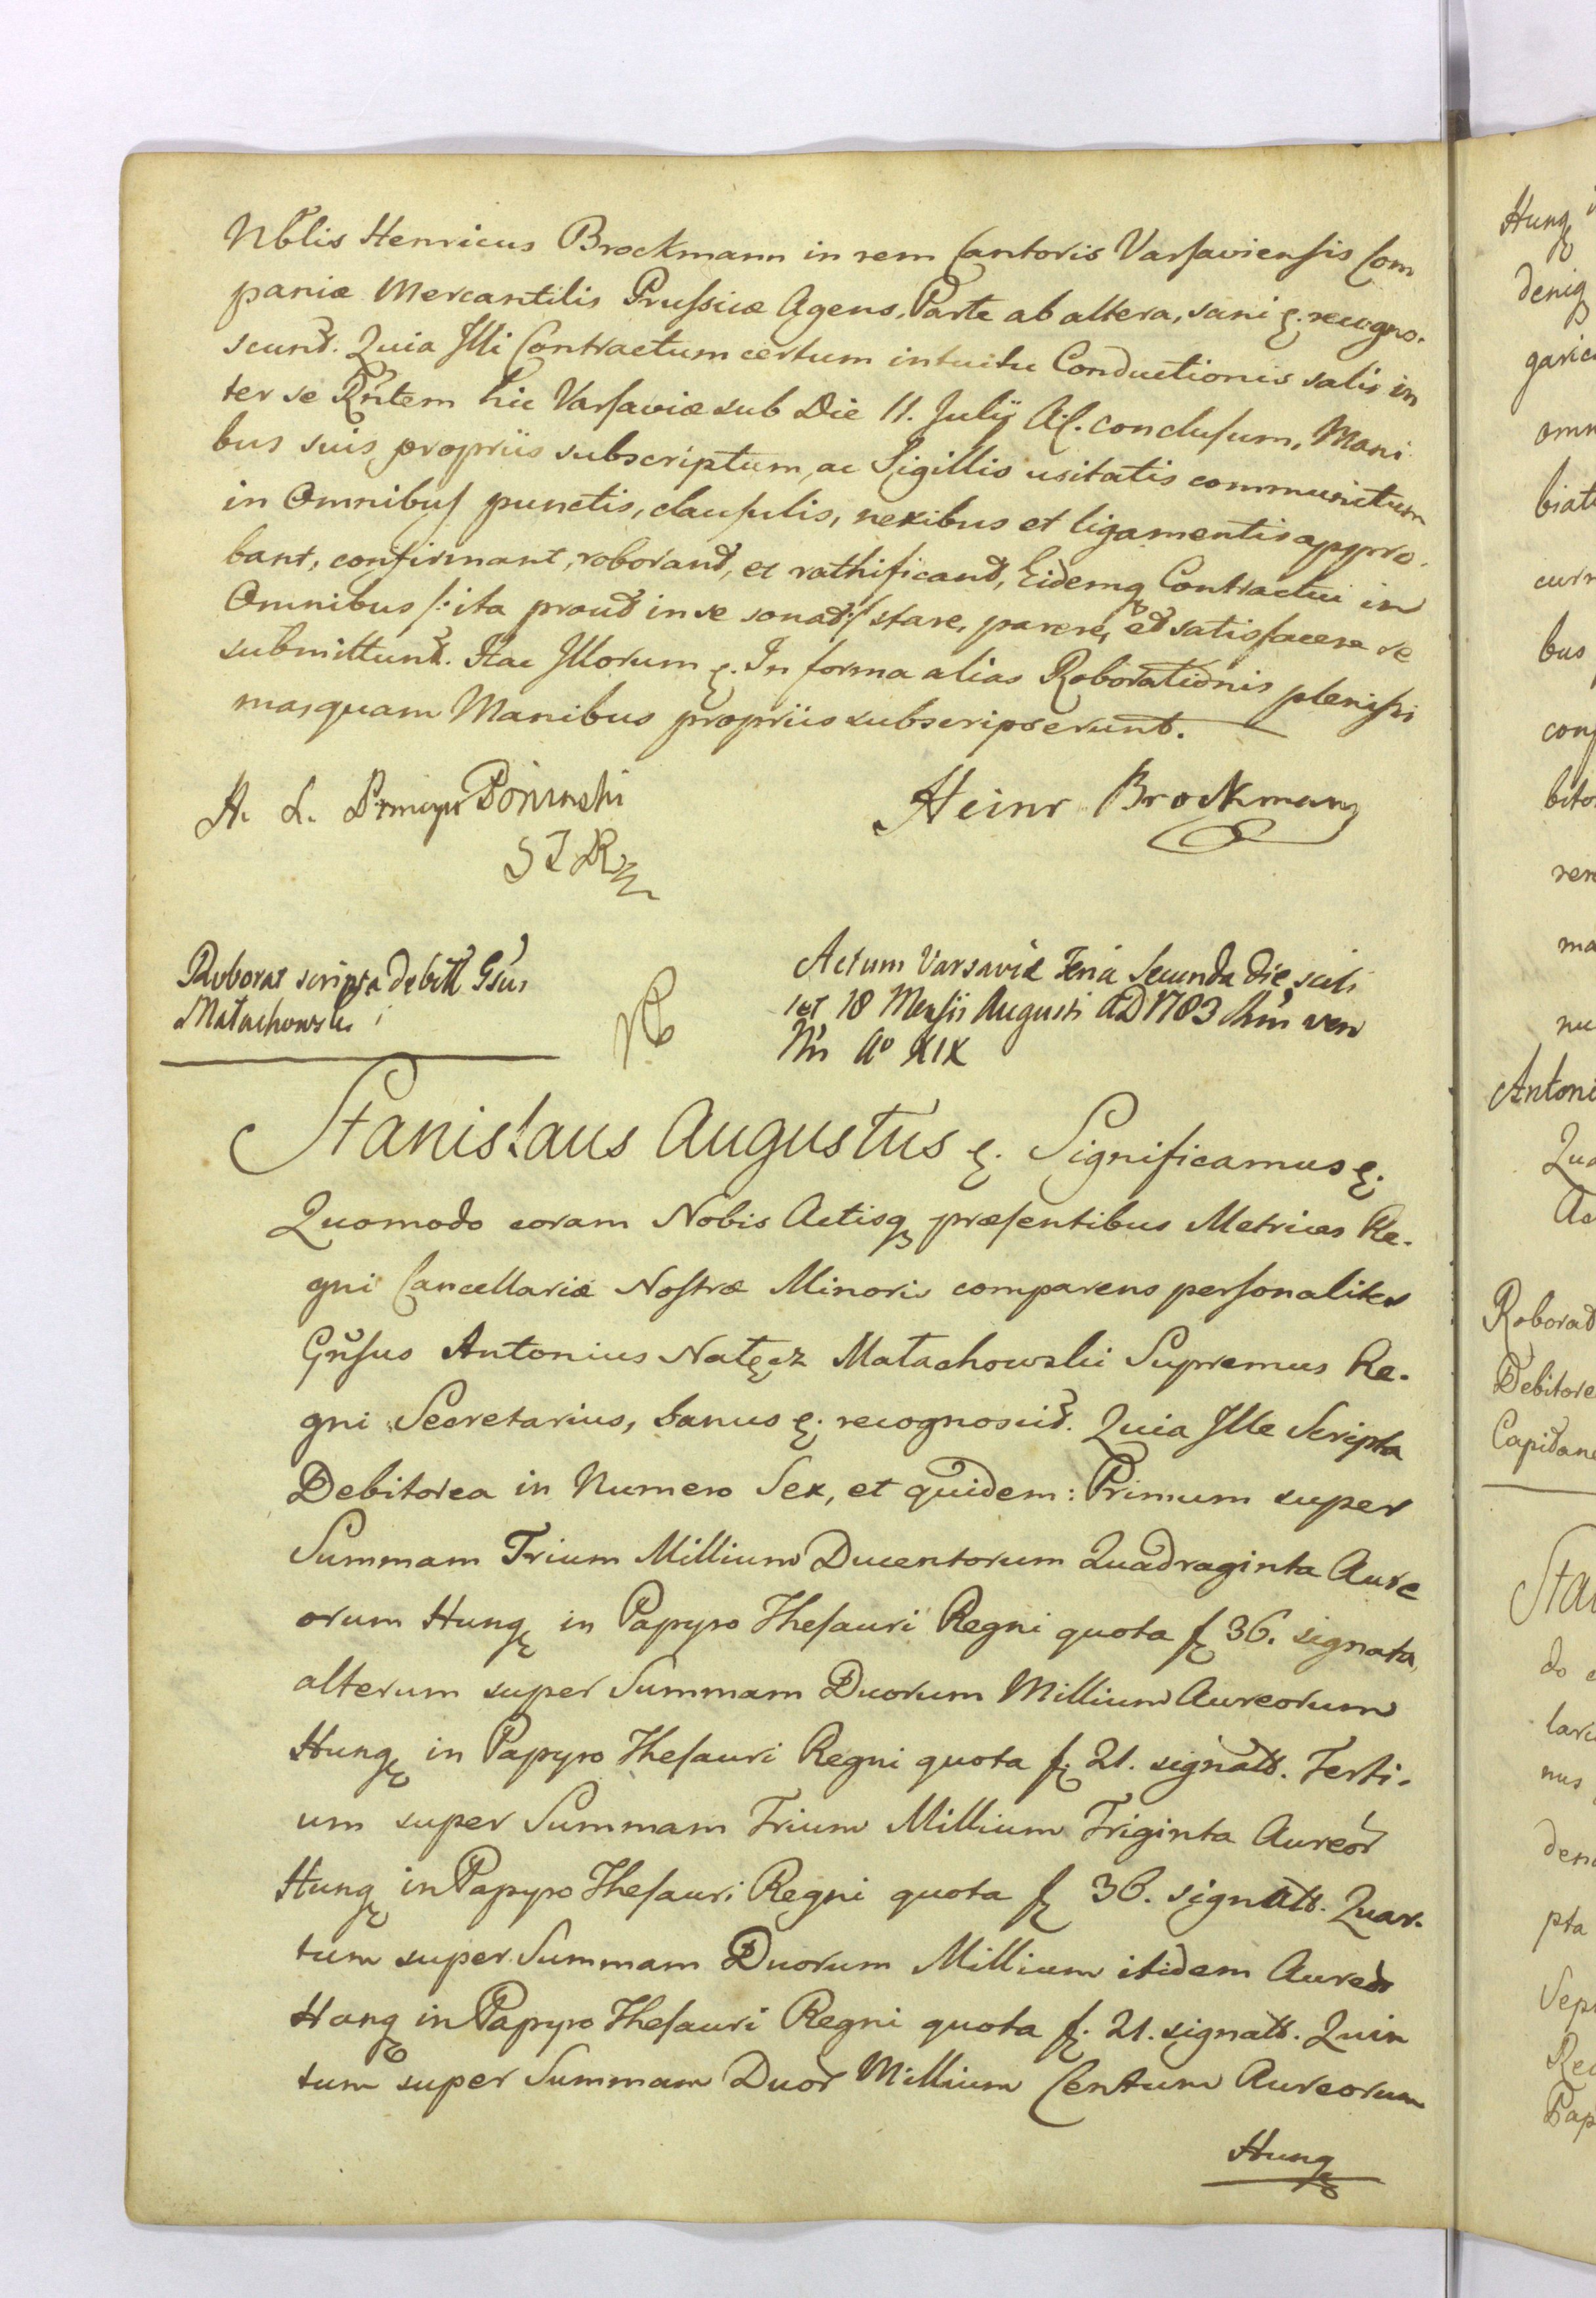 Nblis Henricus Brockmann in rem Cantoris Varsaviensis Com
paniæ Mercantilis Prussicæ Agens, Parte ab altera, sani &. recogno.
scunt. Quia Illi Contractum certum intuitu Conductionis salis in
ter se Rntem hic Varsaviæ sub Die 11. Julij A.C. conclusum, Mani
bus suis propriis subscriptum, ac Sigillis usitatis communitum
in Omnibus punctis, clausulis, nexibus et ligamentis appro.
bant, confirmant, roborant, et rathificant, Eidemq Contractui in
Omnibus /: ita prout in se sonat :/ stare, parere, et satisfacere se
submittunt. Hac Illorum &. In forma alias Roborationis plenissi
mas quam Manibus propriis subscripserunt.
A. L. Princeps Poninski
Heinr Brockmann
Roborat scripta debitt Gsus
Małachowski
Actum Varsaviæ Feria Secunda die scili
cet 18 Mensis Augusti AD 1783 Rni vero
Nri Ao XIX
Stanislaus Augustus &. Significamus &.
Quomodo coram Nobis Actisq præsentibus Metrices Re.
gni Cancellariæ Nostræ Minoris comparens personaliter
Gnsus Antonius Natęcz Małachowski Supremus Re.
gni Secretarius, sanus &. recognoscit. Quia Ille Scripta
Debitorea in Numero Sex, et quidem: Primum super
Summam Trium Millium Ducentorum Quadraginta Aure
orum Hungq in Papyro Thesauri Regni quota f 36. signata,
alterum super Summam Duorum Millium Aureorum
Hungq in Papyro Thesauri Regni quota f. 21. signatt. Terti.
um super Summam Trium Millium Triginta Aureor
Hungq in Papyro Thesauri Regni quota f 36. signatt. Quar.
tum super Summam Duorum Millium itidem Aureor
Hungq in Papyro Thesauri Regni quota f. 21. signatt. Quin
tum super Summam Duor Millium Centum Aureorum
Hungq
Hungq
deniq
Antoni
Roborat
Debitore
Capitane